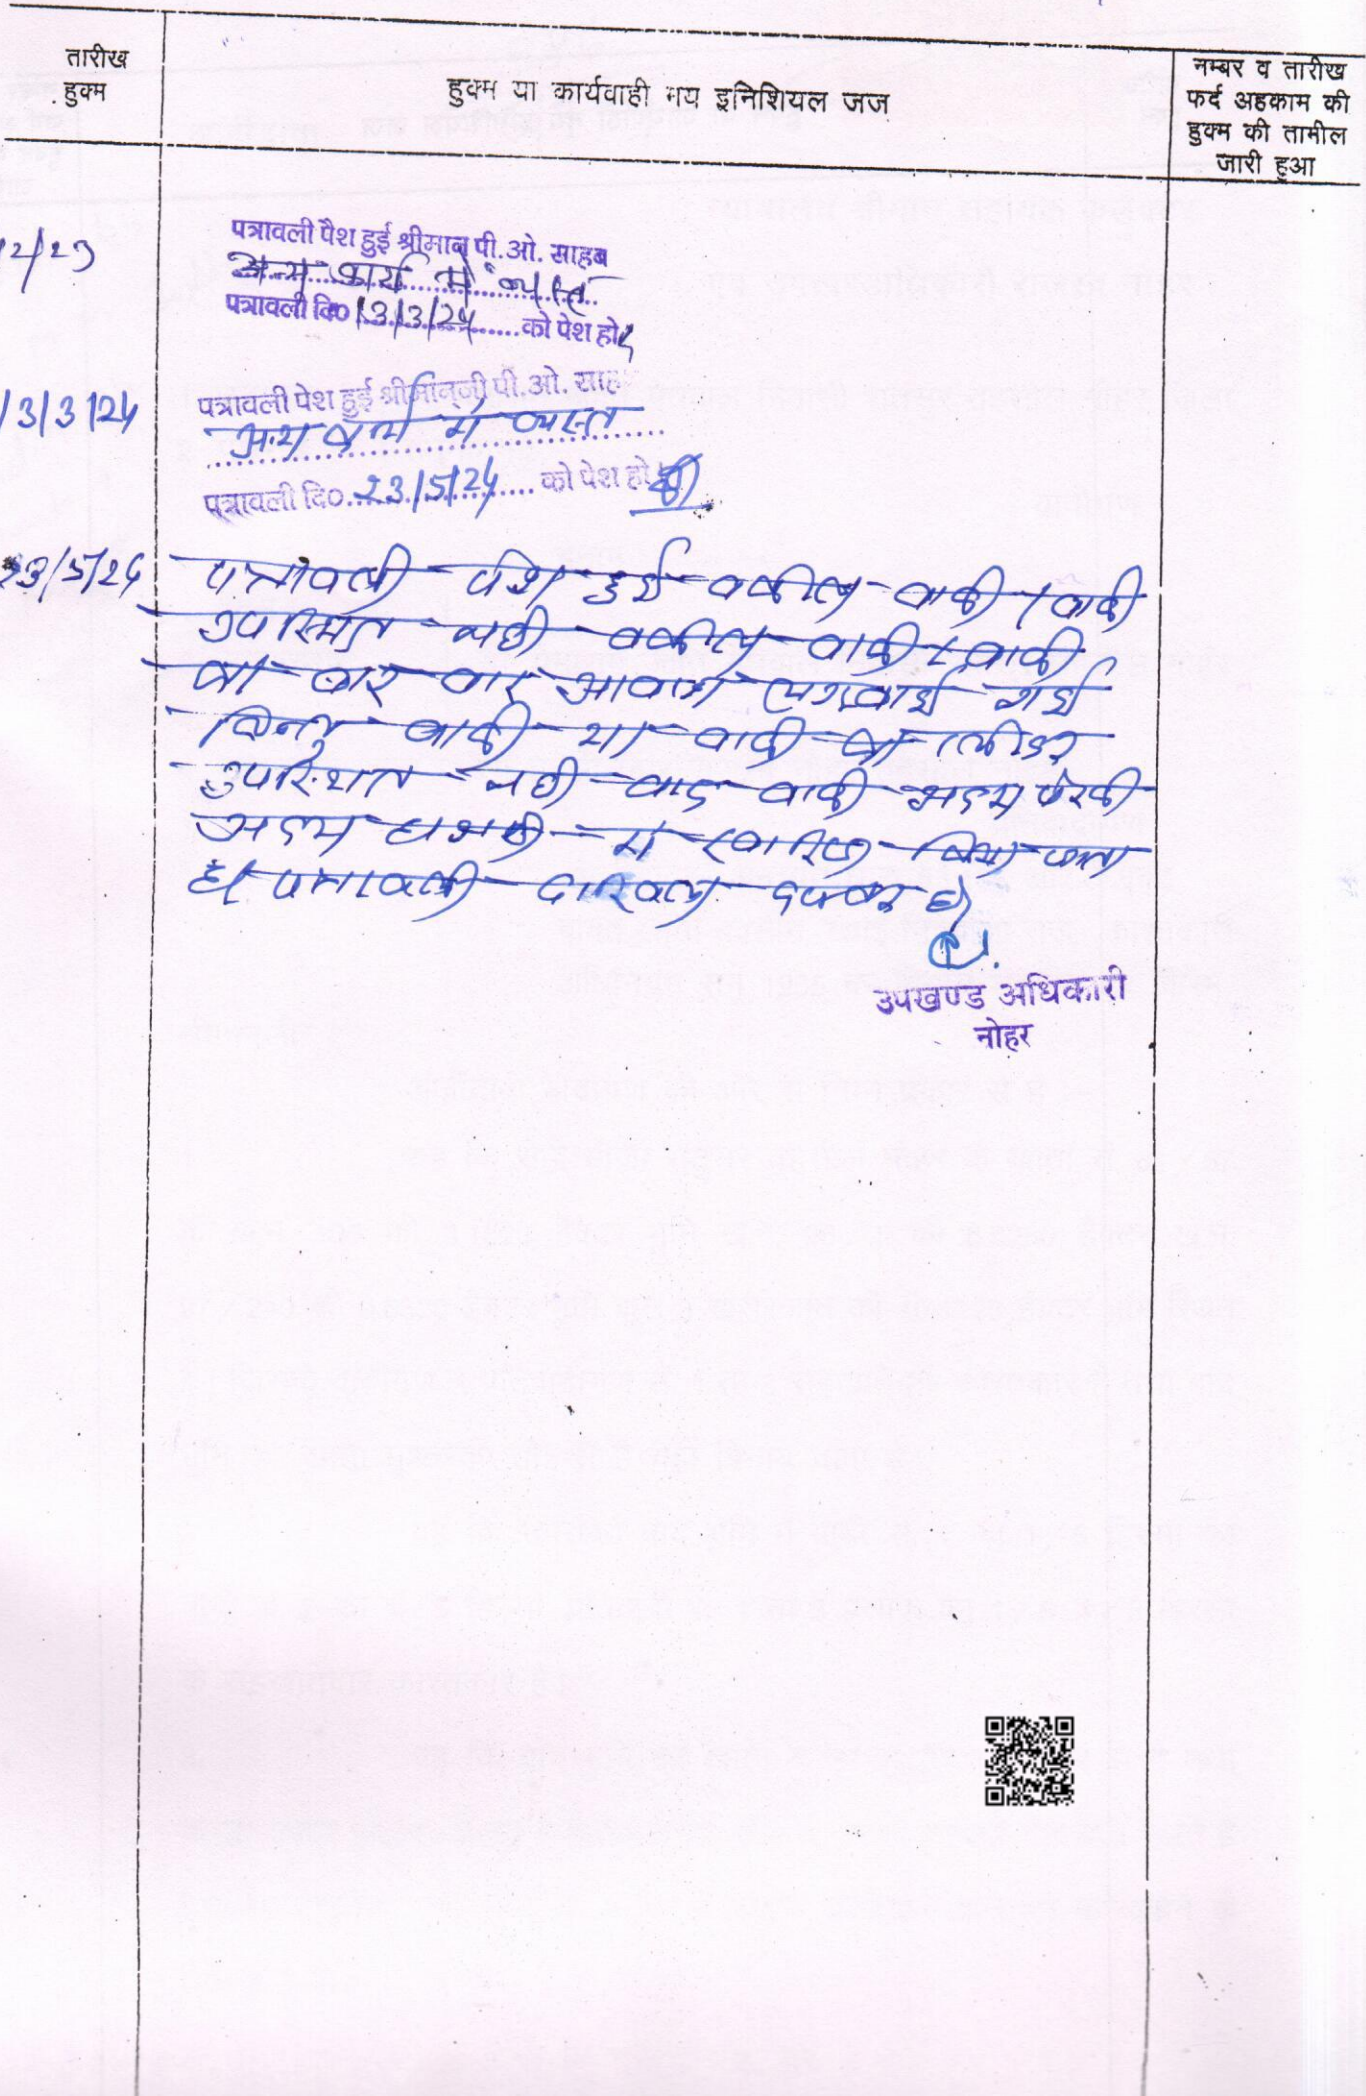 तारीख
हुक्म
हुक्म या कार्यवाही मय इनिशियल जज
नम्बर व तारीख
फर्द अहकाम की
हुक्म की तामील
जारी हुआ
2/23
पत्रावली पैश हुई श्रीमान् पी.ओ. साहब
अन्य कार्य में व्यस्त
पत्रावली दि0 13/3/24 को पेश हो
13/3/24
पत्रावली पेश हुई श्रीमान्जी पी.ओ. साह
अन्य कार्य में व्यस्त
पत्रावली दि0 23/5/24 को पेश हो
23/5/24
पत्रावली पेश हुई वकील वादी / वादी
उपस्थित नही वकील वादी / वादी
को बार बार आवाज लगवाई गई
किन्तु वादी या वादी का प्लीडर
उपस्थित नही वाद वादी अदम पैरवी
अदम हाजरी में खारिज किया जाता
है। पत्रावली दाखिल दफ्तर हो
उपखण्ड अधिकारी
नोहर